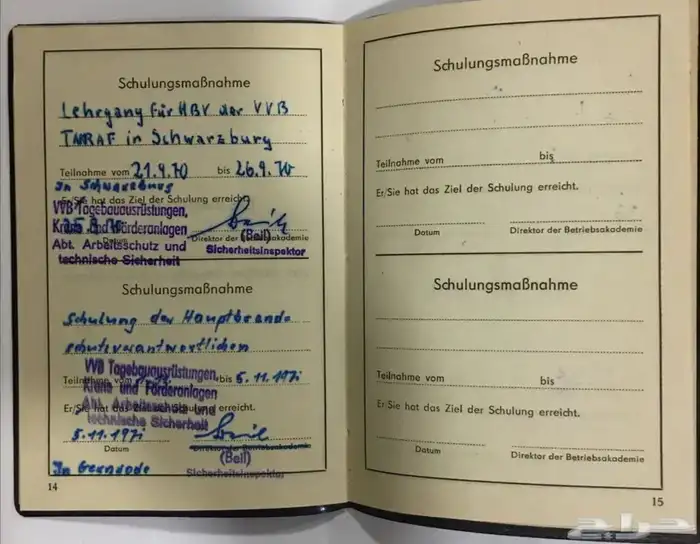 Schulungsmaßnahme
Lehrgang für HBV der VVB
TAKRAF in Schwarzburg
Teilnahme vom 21.9.70 bis 26.9.70
In Schwarzburg
Er/Sie hat das Ziel der Schulung erreicht.
VVB Tagebauausrüstungen,
Krane und Förderanlagen
Abt. Arbeitsschutz und
technische Sicherheit
Datum
Direktor der Betriebsakademie
(Beil)
Sicherheitsinspektor
Schulungsmaßnahme
Schulung der Hauptbrand-
schutzverantwortlichen
Teilnahme vom bis 5.11.1971
VVB Tagebauausrüstungen,
Krane und Förderanlagen
Abt. Arbeitsschutz und
technische Sicherheit
Er/Sie hat das Ziel der Schulung erreicht.
5.11.1971
Datum
Direktor der Betriebsakademie
(Beil)
Sicherheitsinspektor
In Gernrode
14
Schulungsmaßnahme
Teilnahme vom bis
Er/Sie hat das Ziel der Schulung erreicht.
Datum Direktor der Betriebsakademie
Schulungsmaßnahme
Teilnahme vom bis
Er/Sie hat das Ziel der Schulung erreicht.
Datum Direktor der Betriebsakademie
15
حراج